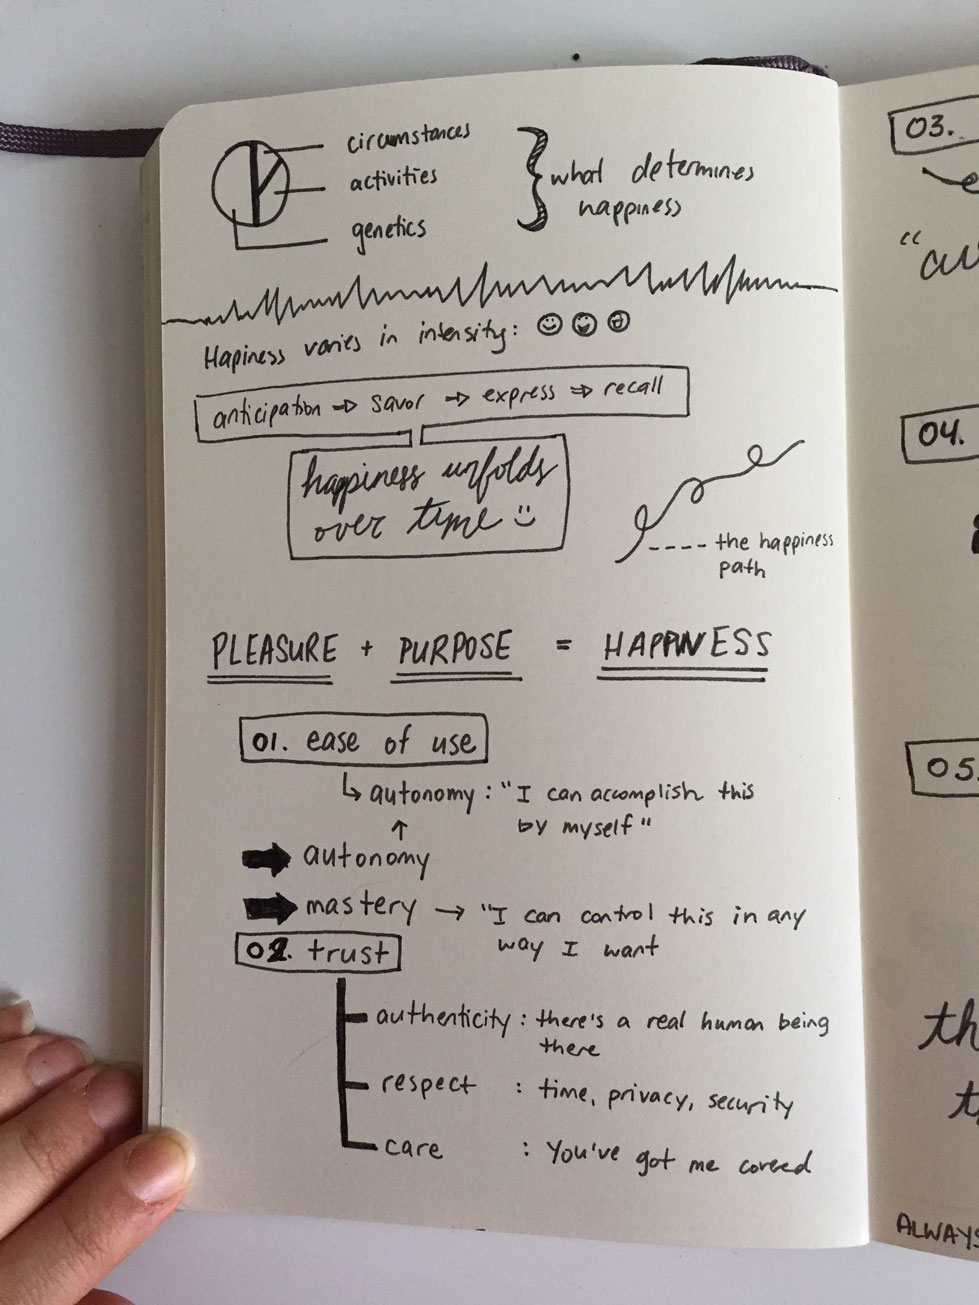 circumstances
activities
genetics
what determines
happiness
Hapiness varies in intensity:
anticipation => savor => express => recall
happiness unfolds
over time
the happiness
path
PLEASURE + PURPOSE = HAPPINESS
01. ease of use
↳ autonomy: "I can accomplish this
by myself"
↑
➡ autonomy
➡ mastery → "I can control this in any
way I want
02. trust
authenticity: there's a real human being
there
respect : time, privacy, security
care : You've got me covered
03.
"au
04.
05.
th
t
ALWAYS